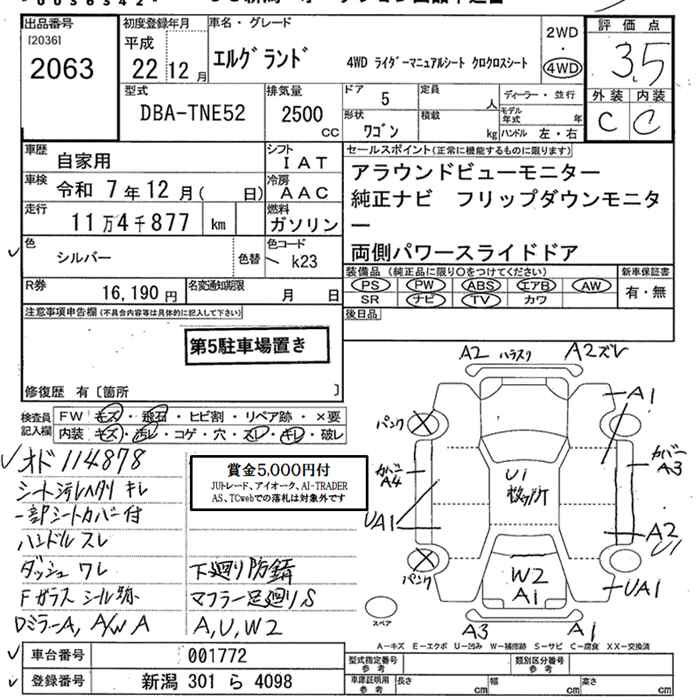 出品番号
[2036]
2063
初度登録年月
平成
22 12 月
車名・グレード
エルグランド
4WD ライダーマニュアルシート クロクロスシート
2WD
・
4WD
評価点
3,5
外装 内装
C C
型式
DBA-TNE52
排気量
2500
CC
ドア 5
定員 人
ディーラー・並行
形状
ワゴン
積載 kg
モデル年式 年
ハンドル 左・右
車歴
自家用
シフト
IAT
車検
令和 7年12月( 日)
冷房
AAC
走行
11万4千877 km
燃料
ガソリン
色
シルバー
色替
色コード
k23
R券
16,190 円
名変通知期限
月 日
セールスポイント(正常に機能するものに限ります)
アラウンドビューモニター
純正ナビ フリップダウンモニタ
ー
両側パワースライドドア
装備品 (純正品に限り○をつけてください)
PS PW ABS エアB AW
SR ナビ TV カワ
新車保証書
有・無
後日品
注意事項申告欄(不具合内容等は具体的に記入して下さい)
第5駐車場置き
修復歴 有〔箇所 〕
検査員
記入欄
FW キズ・飛石・ヒビ割・リペア跡・×要
内装 キズ・汚レ・コゲ・穴・スレ・キレ・破レ
オド114878
シート汚レヘタリ キレ
一部シートカバー付
ハンドルスレ
ダッシュ ワレ
Fガラス シール跡
DミラーA, A/W A
下廻り防錆
マフラー足廻りS
A, U, W2
賞金5,000円付
JUトレード、アイオーク、AI-TRADER
AS、TCwebでの落札は対象外です
A2 ハラスク A2ズレ
A1
パンク
カバー
A4
カバー
A3
U1
UA1
A2
U
パンク
W2
A1
UA1
スペア
A3 A1
A-キズ E-エクボ U-凹み W-補修跡 S-サビ C-腐食 XX-交換済
車台番号
001772
登録番号
新潟 301 ら 4098
型式指定番号
参考
類別区分番号
参考
車庫証明用
参考
長さ cm
幅 cm
高さ cm